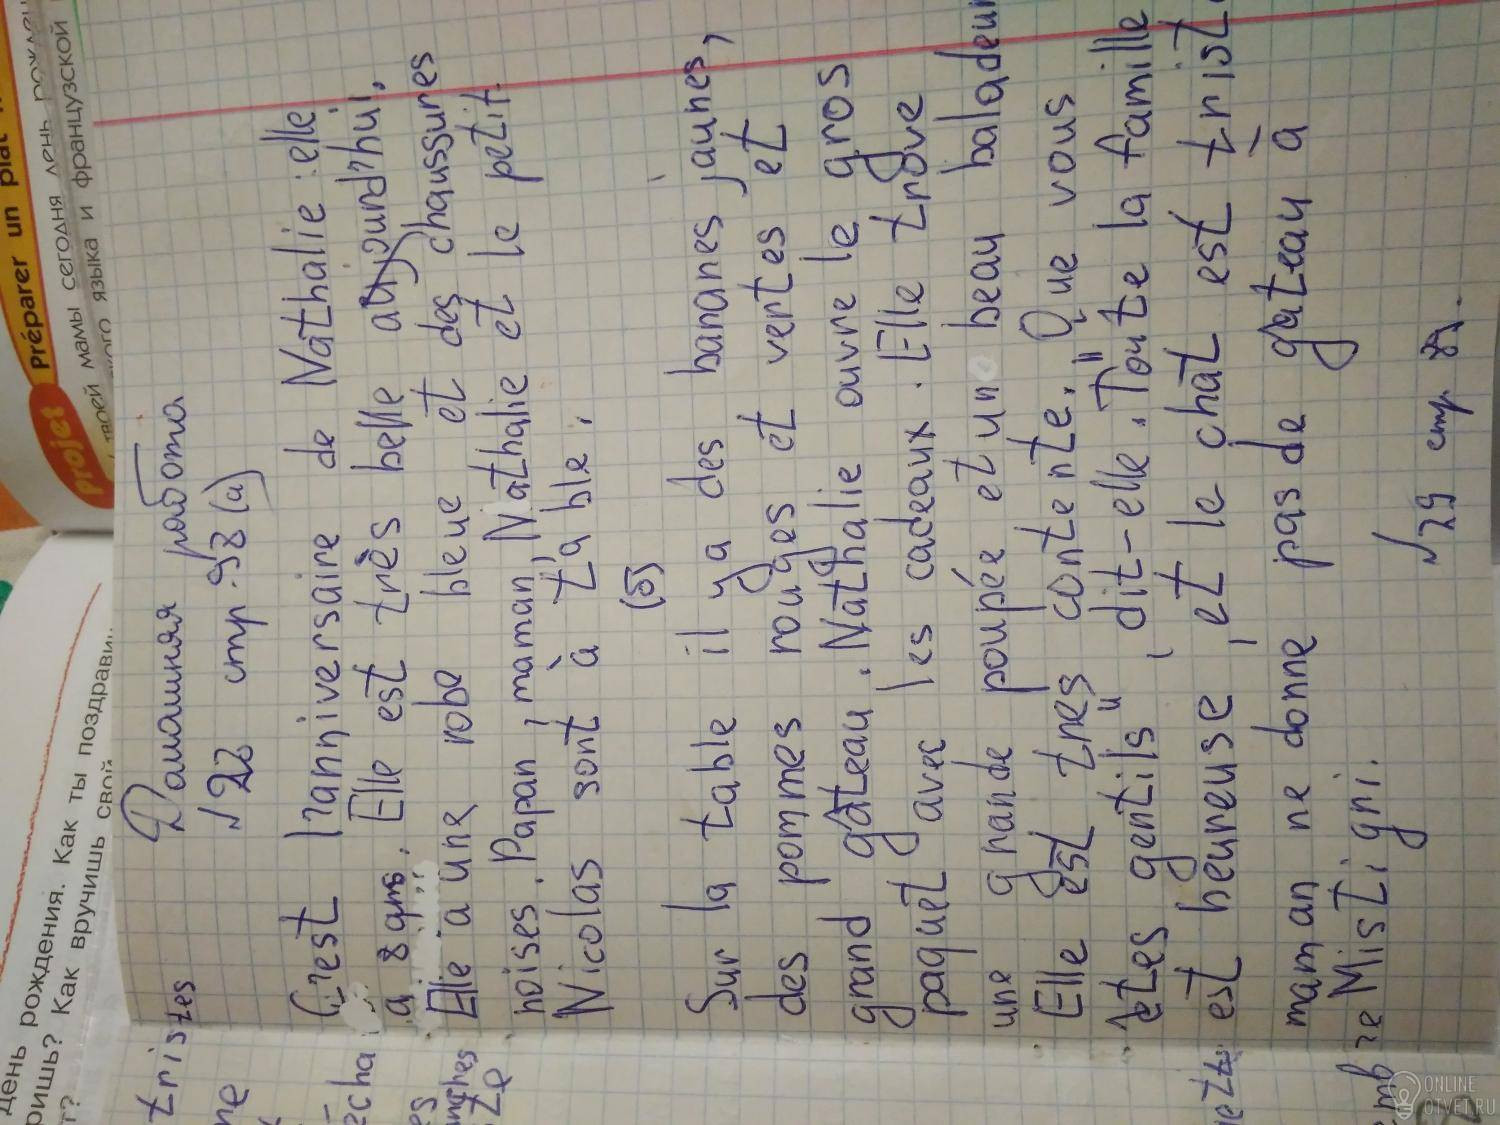 Домашняя работа
№ 28 стр. 98 (а)
C'est l'anniversaire de Nathalie : elle
a 8 ans. Elle est très belle aujourd'hui.
Elle a une robe bleue et des chaussures
noires. Papan, maman, Nathalie et le petit
Nicolas sont à table.
(б)
Sur la table il y a des bananes jaunes,
des pommes rouges et vertes et
grand gâteau. Nathalie ouvre le gros
paquet avec les cadeaux. Elle trouve
une grande poupée et un beau baladeur
Elle est tres contente. "Que vous
êtes gentils", dit-elle. Toute la famille
est heureuse, et le chat est triste
maman ne donne pas de gâteau a
Mistigri.
№ 29 стр.
Préparer un plat
Projet
твоей мамы сегодня день рожден
языка и французской
день рождения. Как ты поздравит
Как вручишь свой
tristes
ne
écha
te